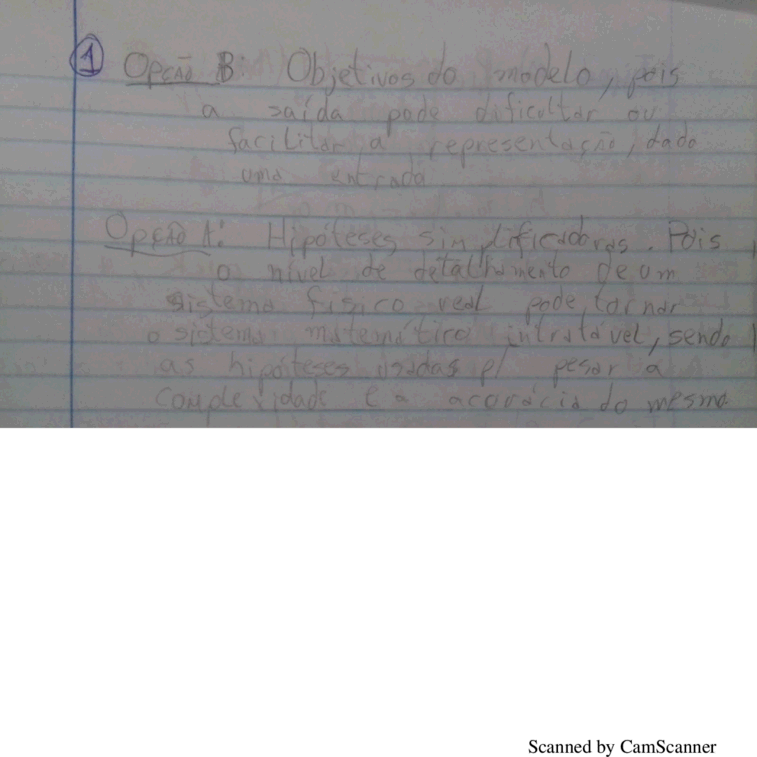 1 Opção B: Objetivos do modelo, pois
a saída pode dificultar ou
facilitar a representação, dado
uma entrada
Opção A: Hipóteses simplificadoras. Pois
o nível de detalhamento de um
sistema físico real pode tornar
o sistema matemático intratável, sendo
as hipóteses usadas p/ pesar a
complexidade e a acurácia do mesmo
Scanned by CamScanner